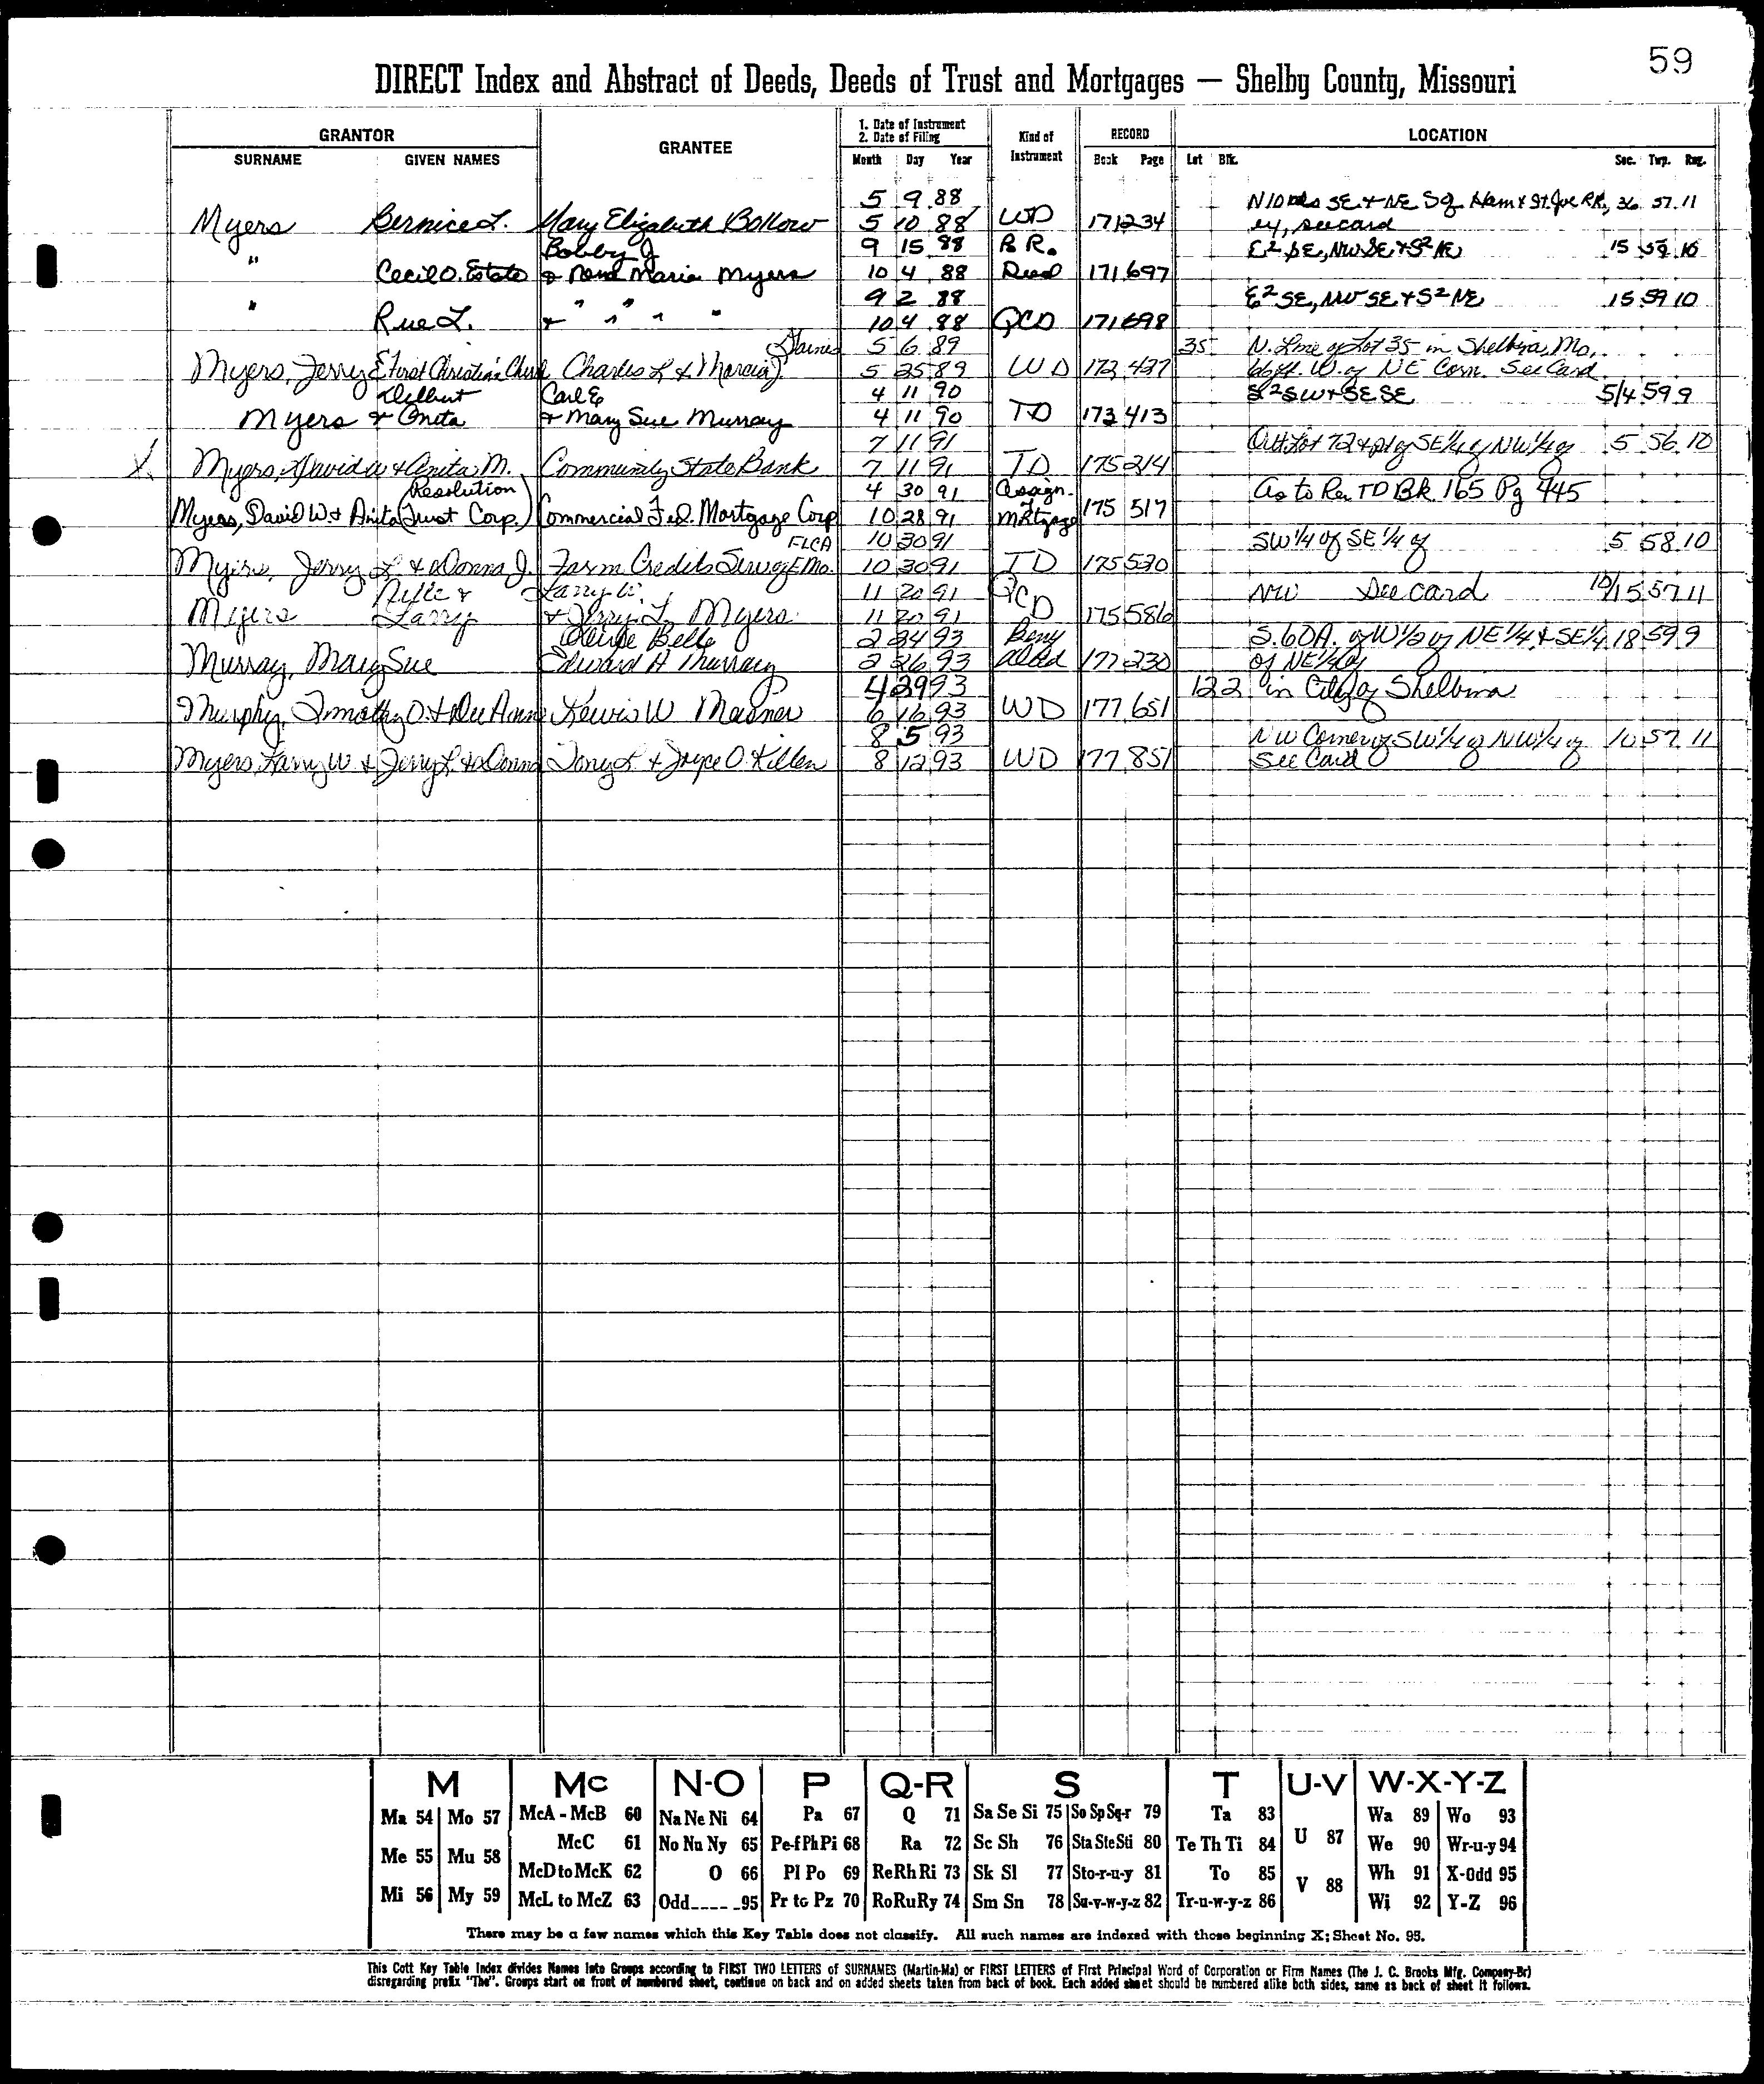 59
DIRECT Index and Abstract of Deeds, Deeds of Trust and Mortgages — Shelby County, Missouri
GRANTOR GRANTEE 1. Date of Instrument 2. Date of Filing Kind of Instrument RECORD LOCATION
SURNAME GIVEN NAMES Month Day Year Book Page Lot Blk. Sec. Twp. Rng.
5 9 88 SE + NE Ham & St. Joe RR, 36 57 11
Myers Bernice L. Mary Elizabeth Bollow 5 10 88 WD 171 234 see card
Bobby J 9 15 88 15 59 10
" Cecil O. Estate & Maria Myers 10 4 88 Deed 171 697
9 2 88 E2 SE, NW SE + S2 NE 15 59 10
" Rue L. & " " " " 10 4 88 QCD 171 698
5 6 89 35 N. Line of Lot 35 in Shelbina, Mo.
Myers, Jerry E First Christian Church Charles L & Marcia J. 5 25 89 WD 172 437 66 ft. W. of NE Corn. See Card
Delbert Carl E 4 11 90 S2 SW + SE SE 5/4 59 9
Myers & Anita & Mary Sue Murray 4 11 90 TD 173 413
7 11 91 Out Lot 72 & pt of SE 1/4 of NW 1/4 of 5 56 10
X Myers, David W & Anita M. Community State Bank 7 11 91 TD 175 214
(Resolution 4 30 91 Assign. As to Re TD Bk 165 Pg 445
Myers, David W. & Anita Trust Corp.) Commercial Fed. Mortgage Corp 10 28 91 of Mortgage 175 517
FLCA 10 30 91 SW 1/4 of SE 1/4 of 5 58 10
Myers, Jerry L & Donna J. Farm Credit Serv of E Mo. 10 30 91 TD 175 530
& Larry W. 11 20 91 QCD NW See card 10/15 57 11
Myers Larry & Jerry L. Myers 11 20 91 175 586
Belle 2 24 93 Beny S. 60A. of W 1/2 of NE 1/4 & SE 1/4 18 59 9
Murray, Mary Sue Edward A Murray 2 26 93 Deed 177 230 of NE 1/4 of
4 29 93 122 in City of Shelbina
Murphy, Timothy O. & Dee Anne Lewis W 6 16 93 WD 177 651
8 5 93 NW Corner of SW 1/4 of NW 1/4 of 10 57 11
Myers, Larry W. & Jerry L. & Donna Tony L & Joyce O. Killen 8 12 93 WD 177 851 See Card
M Mc N-O P Q-R S T U-V W-X-Y-Z
Ma 54 Mo 57 McA - McB 60 Na Ne Ni 64 Pa 67 Q 71 Sa Se Si 75 So Sp Sq-r 79 Ta 83 Wa 89 Wo 93
Me 55 Mu 58 McC 61 No Nu Ny 65 Pe-f Ph Pi 68 Ra 72 Sc Sh 76 Sta Ste Sti 80 Te Th Ti 84 U 87 We 90 Wr-u-y 94
McD to McK 62 O 66 Pl Po 69 Re Rh Ri 73 Sk Sl 77 Sto-r-u-y 81 To 85 V 88 Wh 91 X-Odd 95
Mi 56 My 59 McL to McZ 63 Odd 95 Pr to Pz 70 Ro Ru Ry 74 Sm Sn 78 Su-v-w-y-z 82 Tr-u-w-y-z 86 Wi 92 Y-Z 96
There may be a few names which this Key Table does not classify. All such names are indexed with those beginning X; Sheet No. 95.
This Cott Key Table Index divides Names into Groups according to FIRST TWO LETTERS of SURNAMES (Martin-Ma) or FIRST LETTERS of First Principal Word of Corporation or Firm Names (The J. C. Brooks Mfg. Company-Br)
disregarding prefix "The". Groups start on front of numbered sheet, continue on back and on added sheets taken from back of book. Each added sheet should be numbered alike both sides, same as back of sheet it follows.